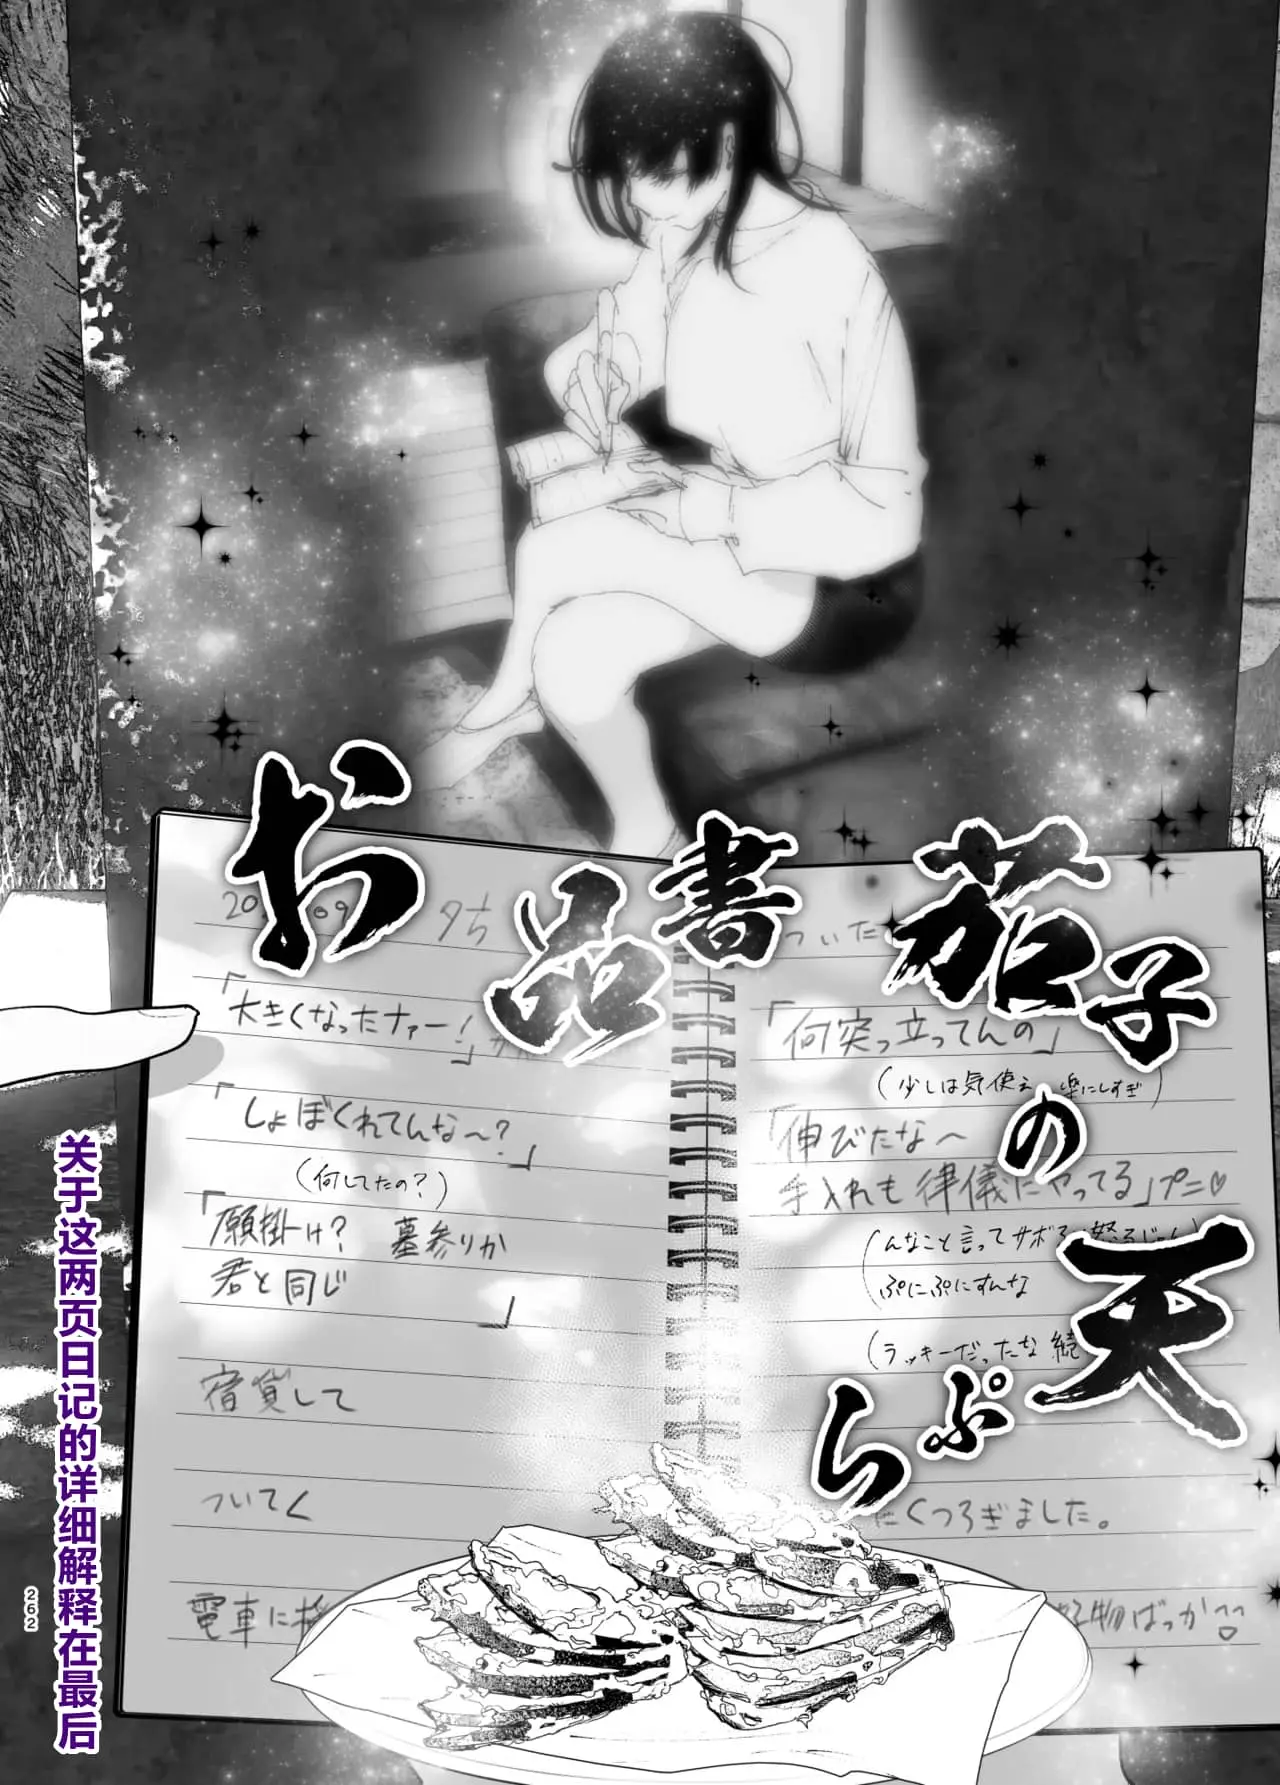 お品書
茄子の
天ぷら
20 09
夕方
「大きくなったナァー!」
「しょぼくれてんな～?」
(何してたの?)
「願掛け? 墓参りか
君と同じ
」
宿貸して
ついてく
電車に
ついた
「何突っ立ってんの」
(少しは気使え 楽にしすぎ)
「伸びたな～
手入れも律儀にやってる」プニ♡
んなこと言ってサボる
ぷにぷにすんな
(ラッキーだったな 続
にくつろぎました。
好物ばっか
关于这两页日记的详细解释在最后
262